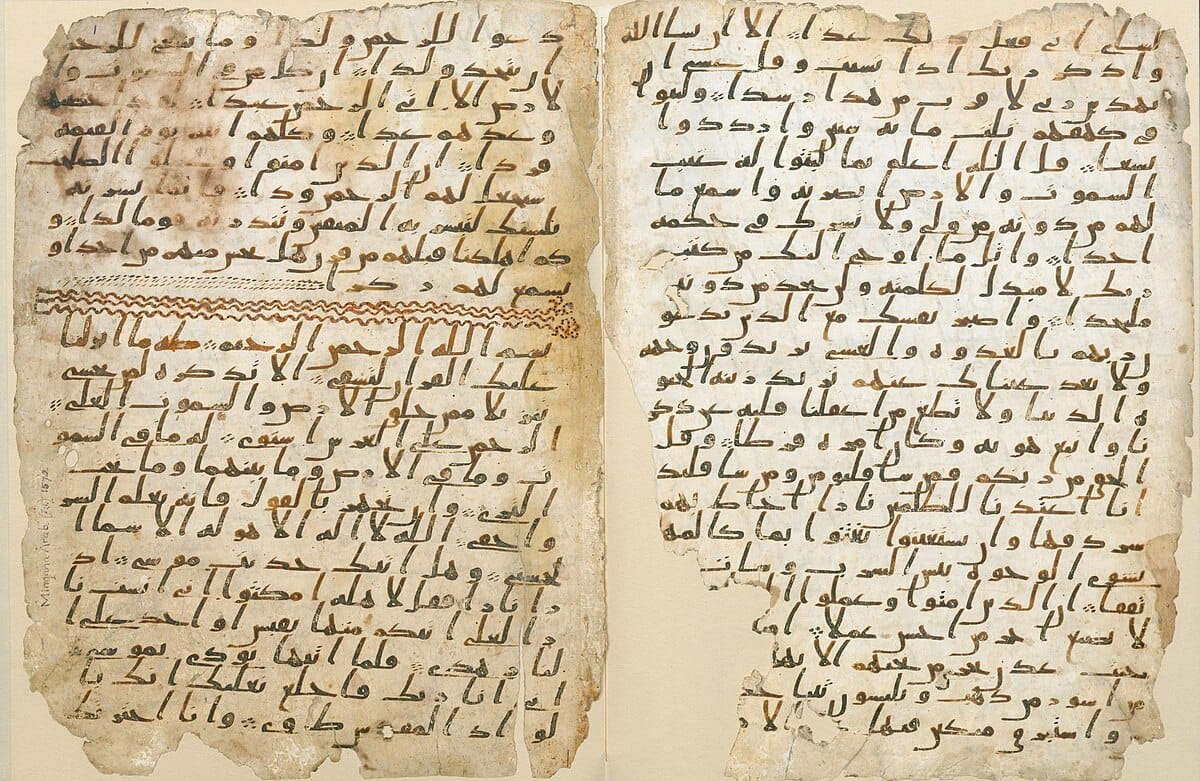 لشاي اني فعل ذلك غدا الا ان يشا الله
واذكر ربك اذا نسيت وقل عسى ان
يهدين ربي لاقرب من هذا رشدا ولبثوا
في كهفهم ثلث مائة سنين وازددوا
تسعا قل الله اعلم بما لبثوا له غيب
السموت والارض ابصر به واسمع ما
لهم من دونه من ولي ولا يشرك في حكمه
احدا واتل ما اوحي اليك من كتب
ربك لا مبدل لكلمته ولن تجد من دونه
ملتحدا واصبر نفسك مع الذين يدعو
ن ربهم بالغدوه والعشي يريدون وجهه
ولا تعد عيناك عنهم تريد زينة الحيو
ه الدنيا ولا تطع من اغفلنا قلبه عن ذكر
نا واتبع هويه وكان امره فرطا وقل
الحق من ربكم فمن شا فليومن ومن شا فليك
انا اعتدنا للظلمين نارا احاط بهم
سردقها وان يستغيثوا يغثوا بما كالمه
يشوي الوجوه بئس الشرب وسات
تفقا ان الذين امنوا وعملوا ا
لا نضيع اجر من احسن عملا او
جنت عدن تجري من تحتهم الانها
من اسور من ذهب ويلبسون ثيبا خ
واستبرق متكين فيها الا ر
دعوا للرحمن ولدا وما ينبغي للرحمن
ان يتخذ ولدا ان كل من في السموت وا
لارض الا اتي الرحمن عبدا لقد احصيهم
وعدهم عدا وكلهم اتيه يوم القيمه
فردا ان الذين امنوا وعملوا الصلحت
سيجعل لهم الرحمن ودا فانما يسرنه
بلسنك لتبشر به المتقين وتنذر به قوما لدا و
كم اهلكنا قبلهم من قرن هل تحس منهم من احد او
تسمع لهم ركزا
بسم الله الرحمن الرحيم طه ما انزلنا
عليك القران لتشقى الا تذكره لمن يخشى
تنزيلا ممن خلق الارض والسموت العلى
الرحمن على العرش استوى له ما في السمو
ت وما في الارض وما بينهما وما تحت
الثرى وان تجهر بالقول فانه يعلم السر
واخفى الله لا اله الا هو له الاسما ا
لحسنى وهل اتيك حديث موسى اذ
را نارا فقل لاهله امكثوا اني انست نا
را لعلي اتيكم منها بقبس او اجد على ا
لنار هدى فلما اتيها نودي يموسى
اني انا ربك فاخلع نعليك انك با
لواد المقدس طوى وانا اخترتك
Mingana Arab. Isl. 1572